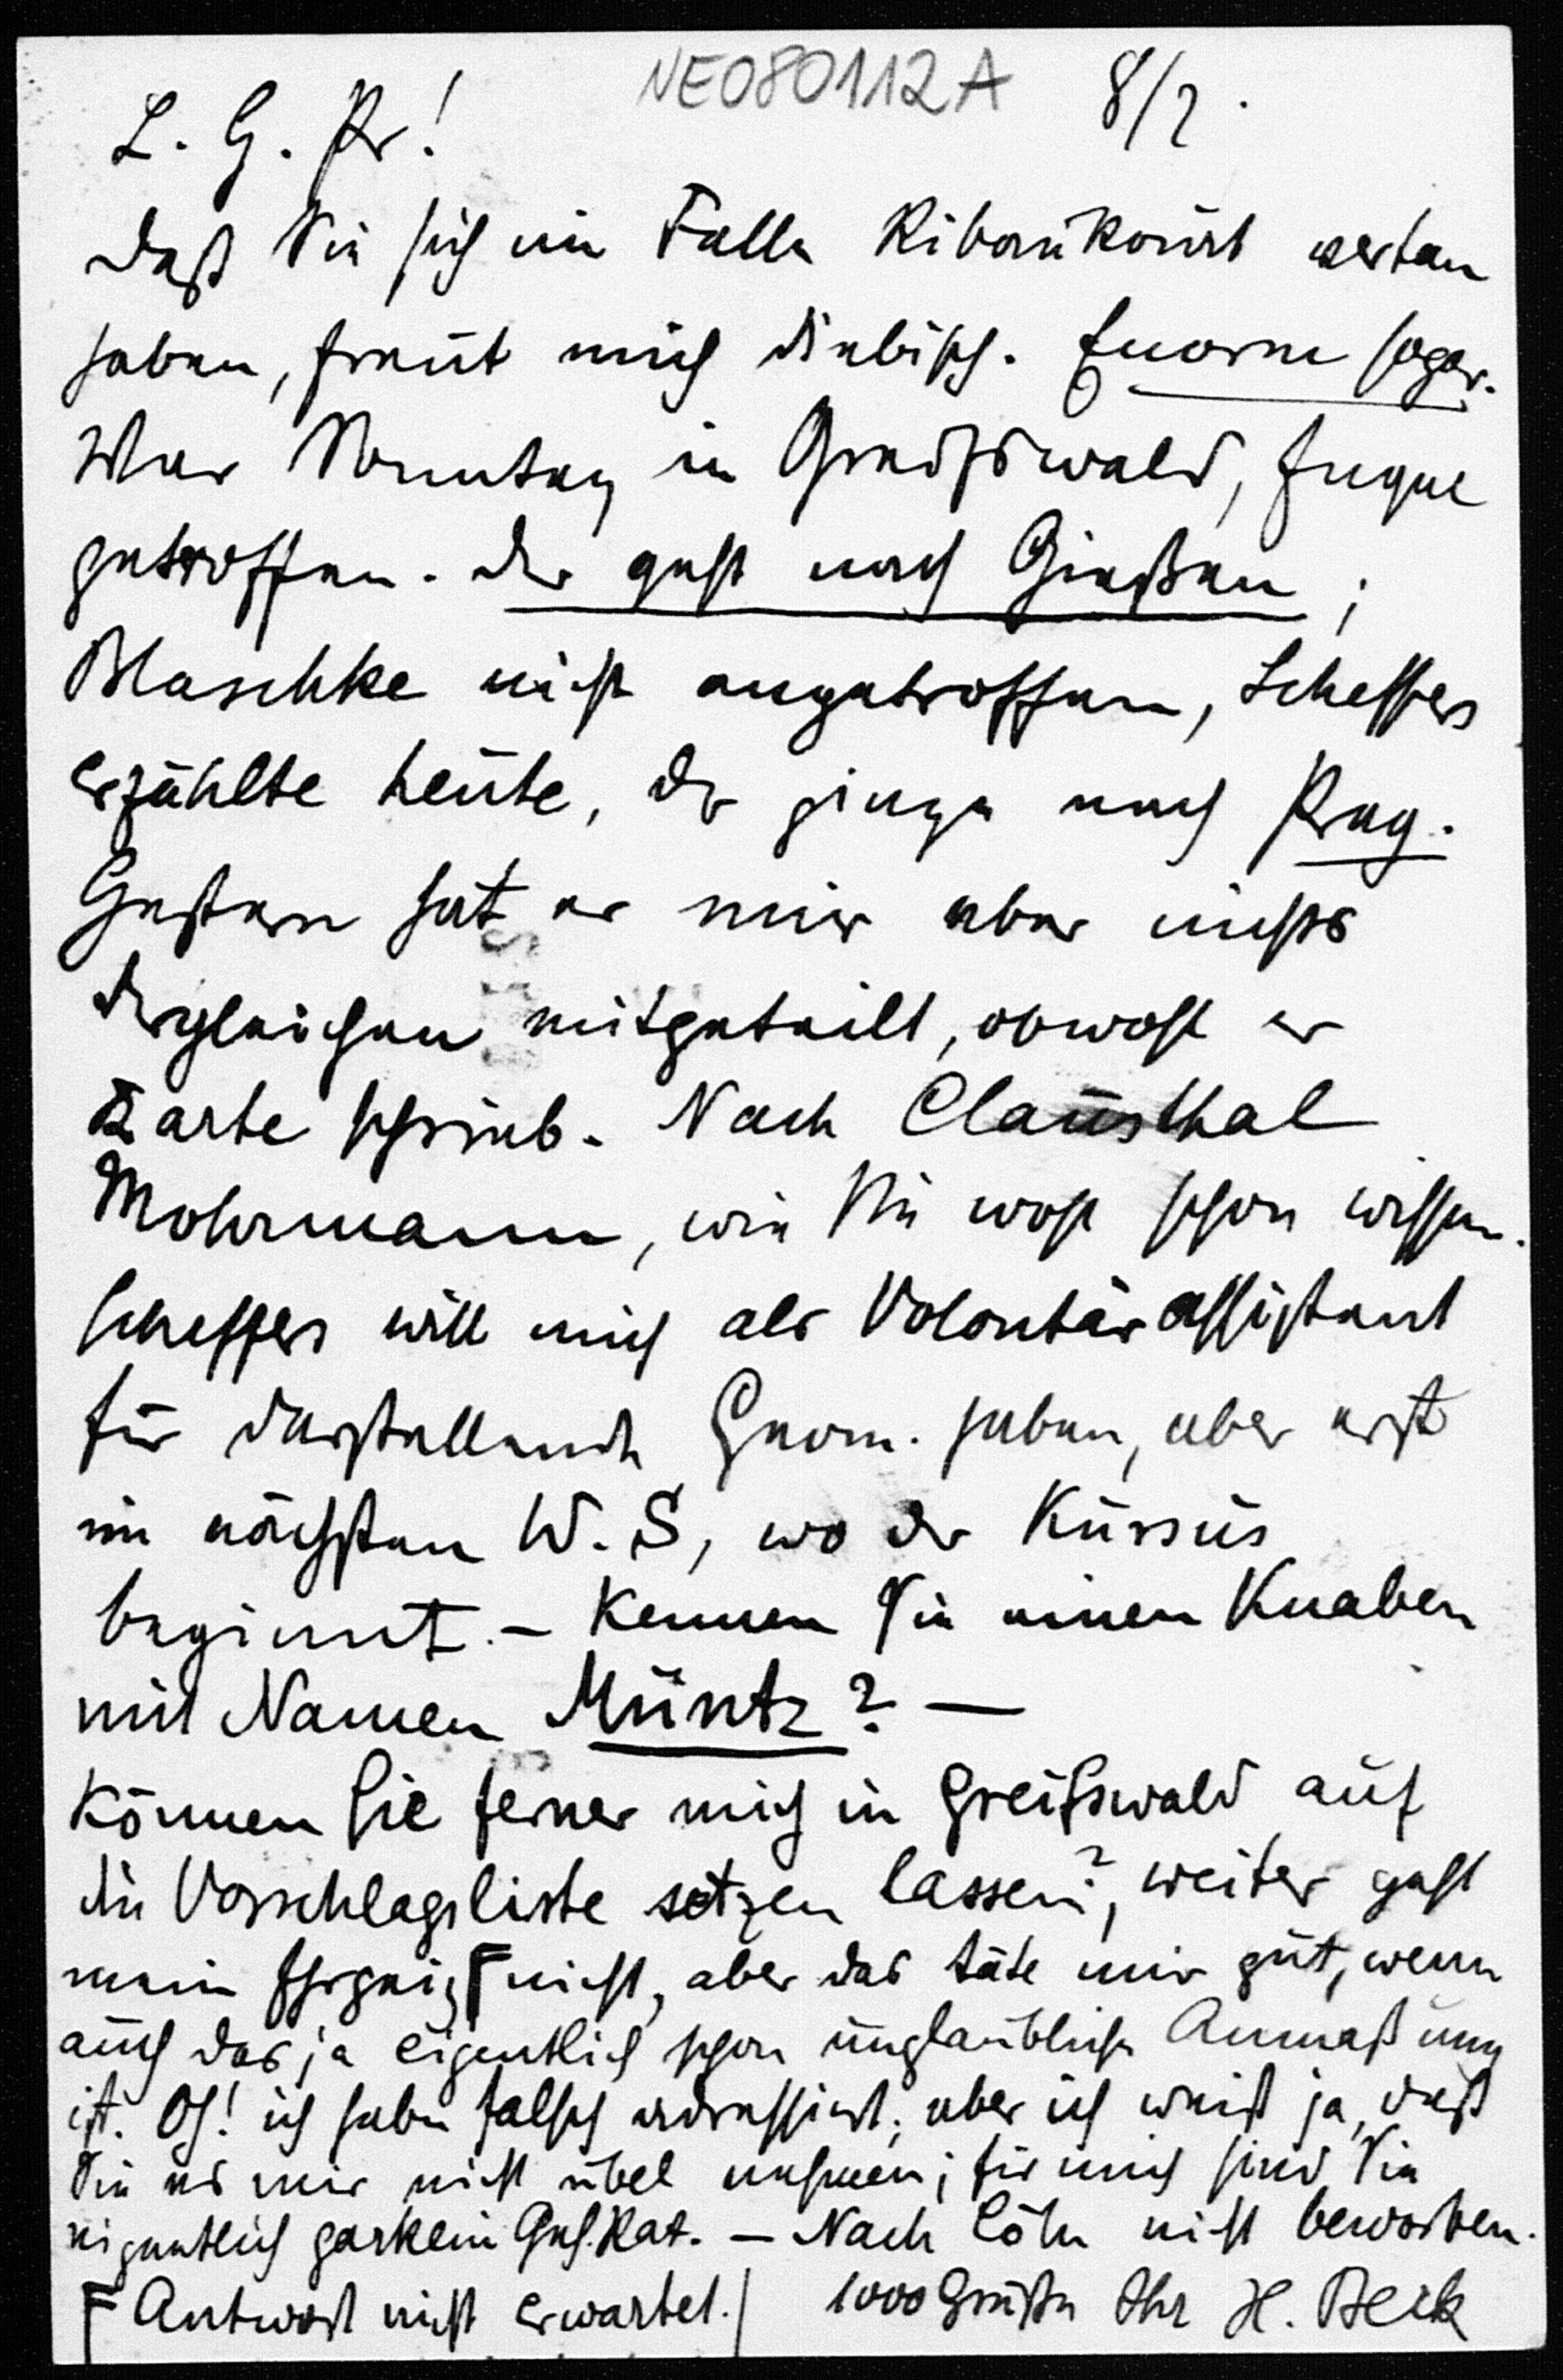 NE080112A 8/2.
L. G. Pr!
Daß Sie sich im Falle Ribaukourt vertan
haben, freut mich diebisch. Enorm sogar.
War Sonntag in Greifswald, Engel
getroffen. Der geht nach Gießen;
Blaschke nicht angetroffen, Scheffers
erzählte heute, der ginge nach Prag.
Gestern hat er mir aber nichts
dergleichen mitgeteilt, obwohl er
Karte schrieb. Nach Clausthal
Mohrmann, wie Sie wohl schon wissen.
Scheffers will mich als Volontärassistent
für darstellende Geom. haben, aber erst
im nächsten W.S, wo der Kursus
beginnt. – Kennen Sie einen Knaben
mit Namen Müntz? —
Können Sie ferner mich in Greifswald auf
die Vorschlagsliste setzen lassen?, weiter geht
mein Ehrgeiz nicht, aber das täte mir gut, wenn
auch das ja eigentlich schon unglaubliche Anmaßung
ist. Oh! ich habe falsch adressiert; aber ich weiß ja, daß
Sie es mir nicht übel nehmen; für mich sind Sie
eigentlich garkein Geh.Rat. – Nach Cöln nicht beworben.
Antwort nicht erwartet. 1000 Grüße Ihr H. Beck